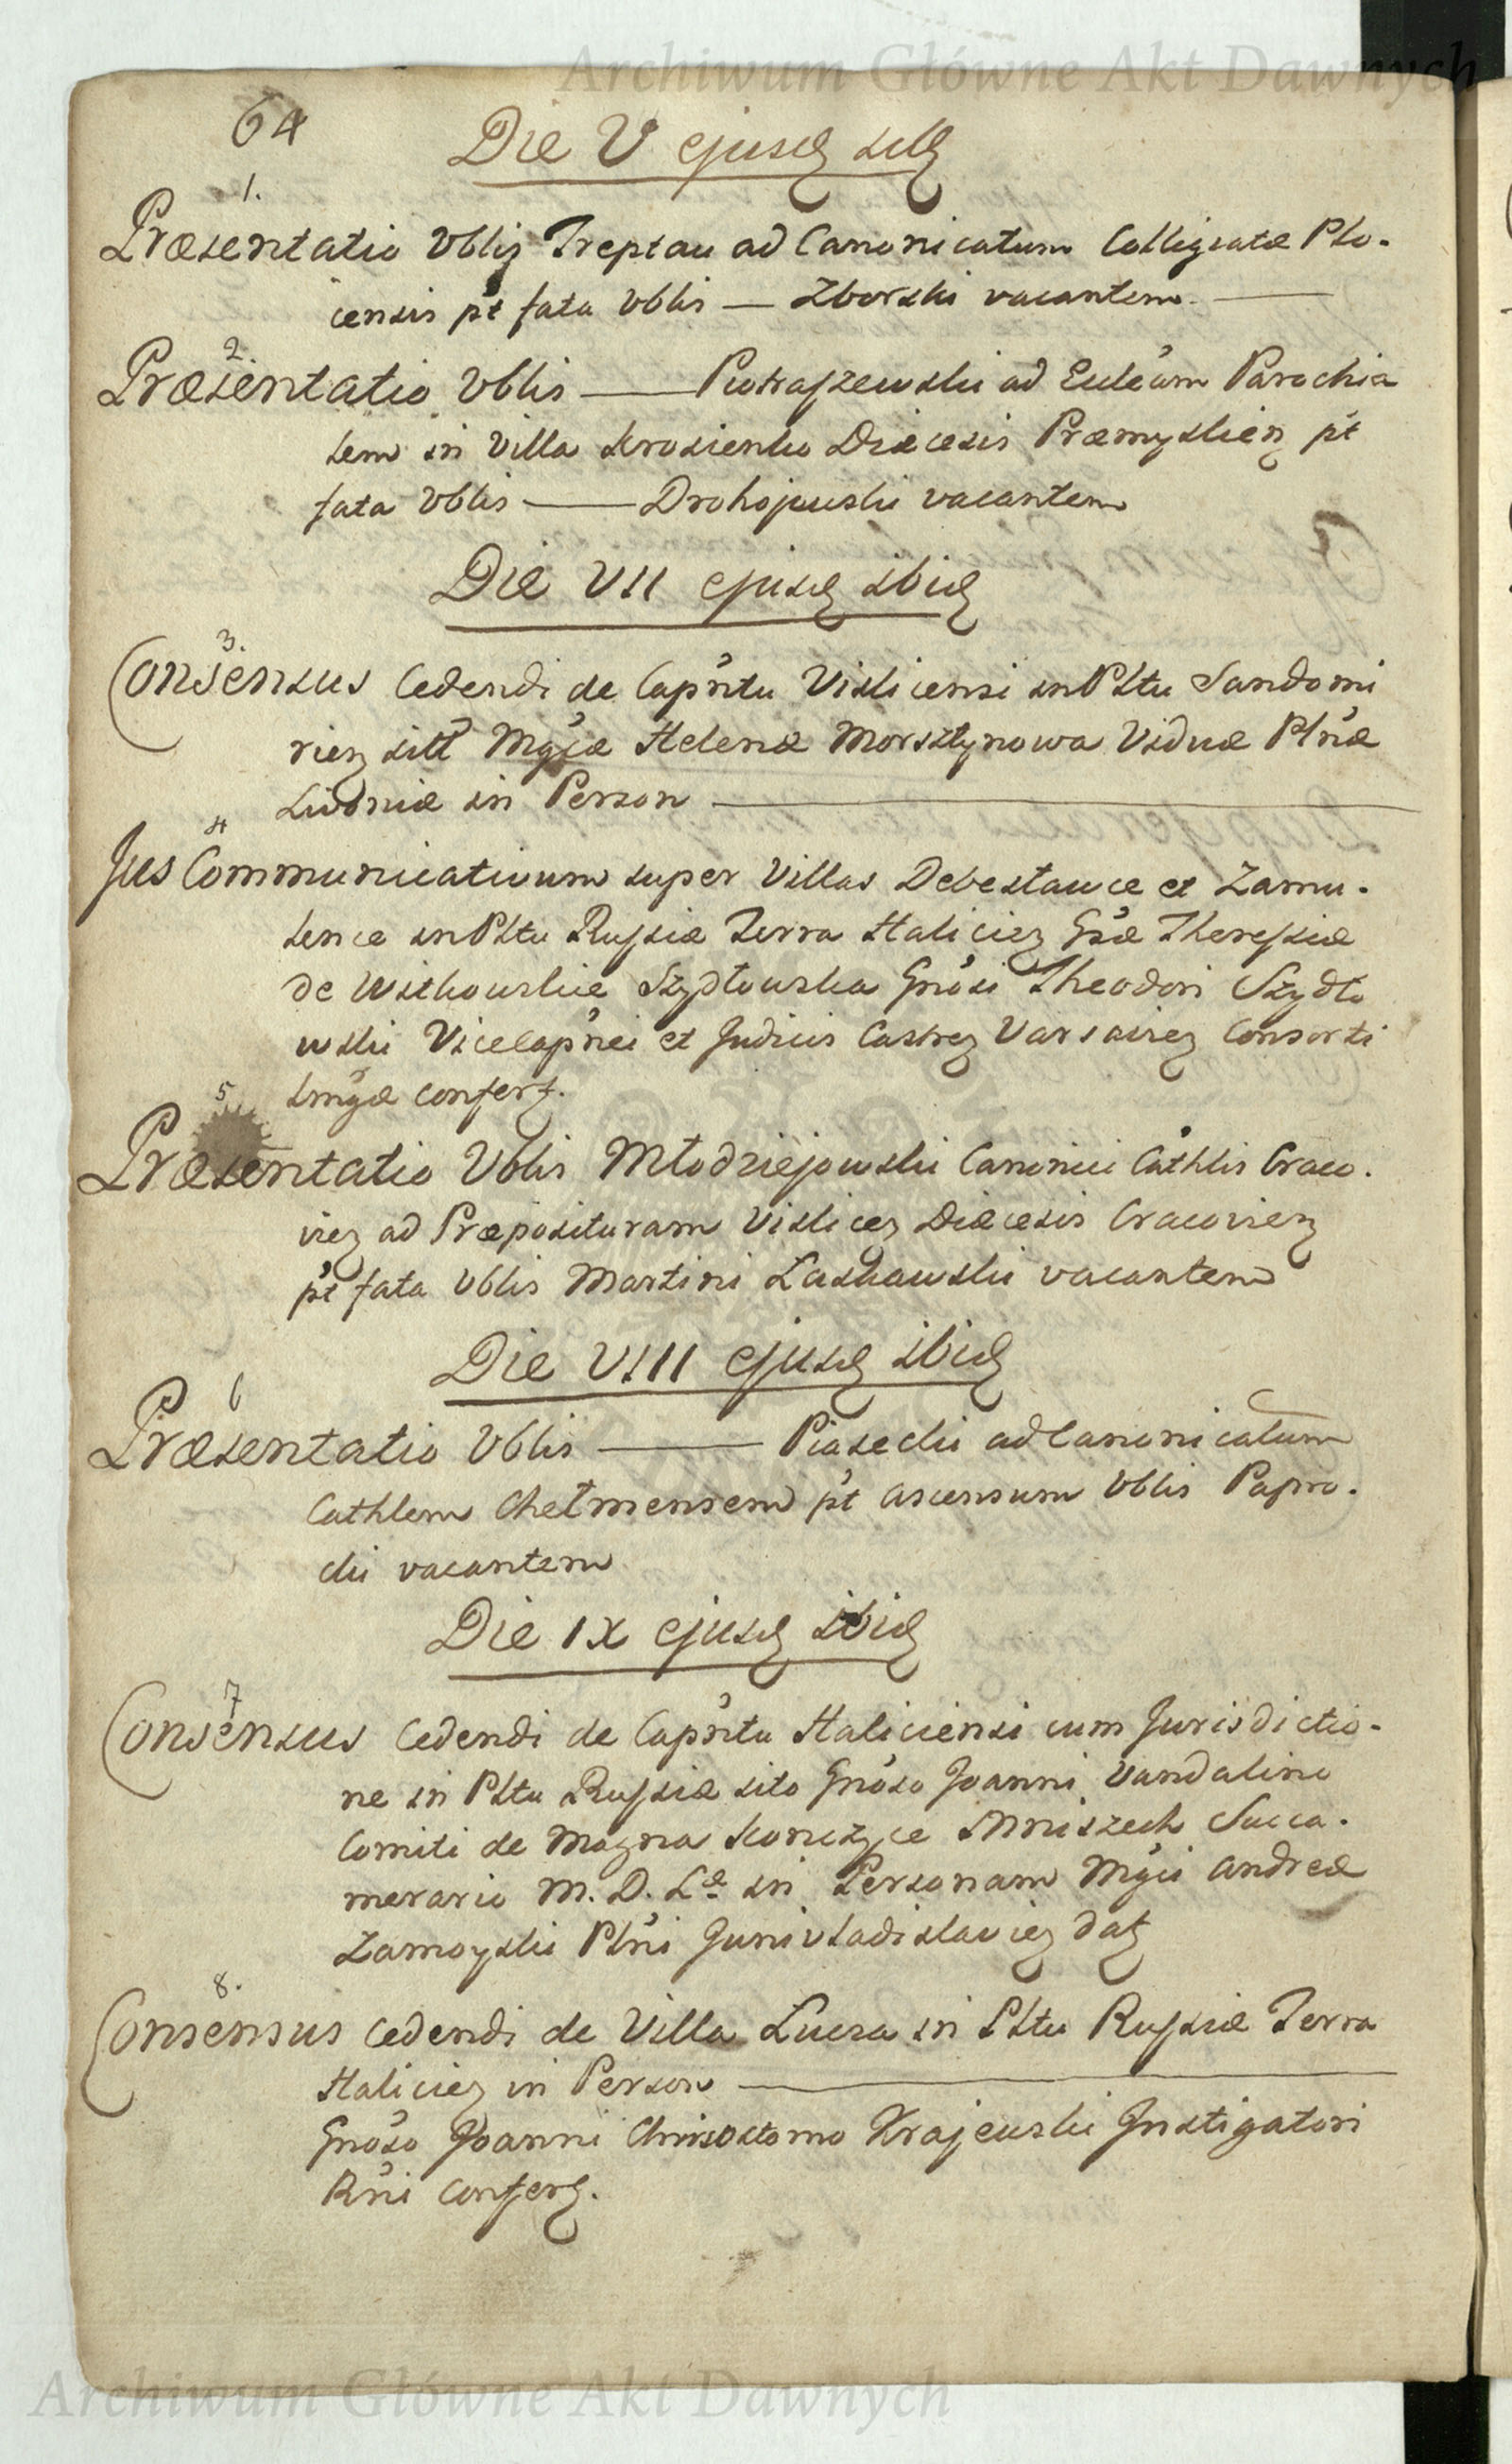 Archiwum Główne Akt Dawnych
64
Die V ejusd
1.
Præsentatio Vblis Treptau ad Canonicatum Collegiatæ Plo-
censis pt fata Vblis — Zborski vacantem. —
2.
Præsentatio Vblis — Piotraszewski ad Ecclêam Parochia
lem in Villa Krosienko Diæcesis Præmyslien pt
fata Vblis — Drohojewski vacantem
Die VII ejusd ibid
3.
Consensus Cedendi de Capntu Visliciensi in Pltu Sandomi
rien sitt Mgcæ Helenæ Morsztynowa Viduæ Plnæ
Livoniæ in Person —
4
Jus Communicativum super Villas Debestawce et Zamu-
lence in Pltu Russiæ Terra Halicien Gsæ Theressiæ
de Witkowskie Szydłowska Gnôsi Theodori Szydło
wski Vicecapnei et Judicis Castren Varsavien Consorti
suæ confert.
5
Præsentatio Vblis Młodziejowski Canonici Cathlis Craco-
vien ad Præposituram Vislicen Diæcesis Cracovien
pt fata Vblis Martini Laskawski vacantem
Die VIII ejusd ibid
6
Præsentatio Vblis — Piasecki ad Canonicatum
Cathlem Chełmensem pt ascensum Vblis Papro-
cki vacantem
Die IX ejusd ibid
7
Consensus Cedendi de Capntu Haliciensi cum Jurisdictio-
ne in Pltu Russiæ sito Gnôso Joanni Vandalino
Comiti de Magna Konczyce Mniszech Succa-
merario M. D. L. in Personam Mgci Andreæ
Zamoyski Plni Junivladislavien dat
8.
Consensus cedendi de Villa Lucza in Pltu Russiæ Terra
Halicien in Person —
Gnôso Joanni Chrisostomo Krajewski Instigatori
Rni Confert.
Archiwum Główne Akt Dawnych